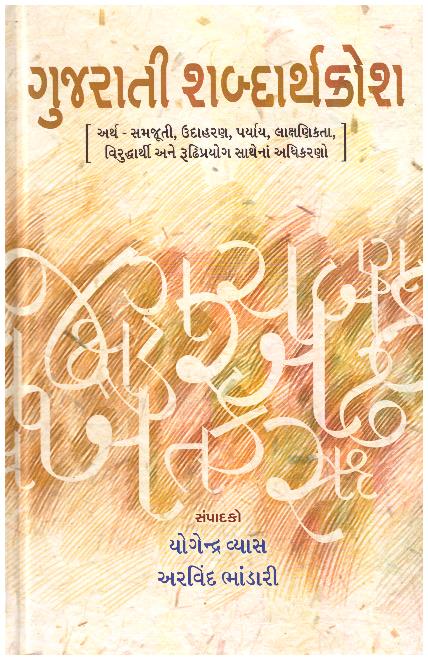 ગુજરાતી શબ્દાર્થકોશ
[ અર્થ - સમજૂતી, ઉદાહરણ, પર્યાય, લાક્ષણિકતા,
વિરુદ્ધાર્થી અને રૂઢિપ્રયોગ સાથેનાં અધિકરણો ]
સંપાદકો
યોગેન્દ્ર વ્યાસ
અરવિંદ ભાંડારી